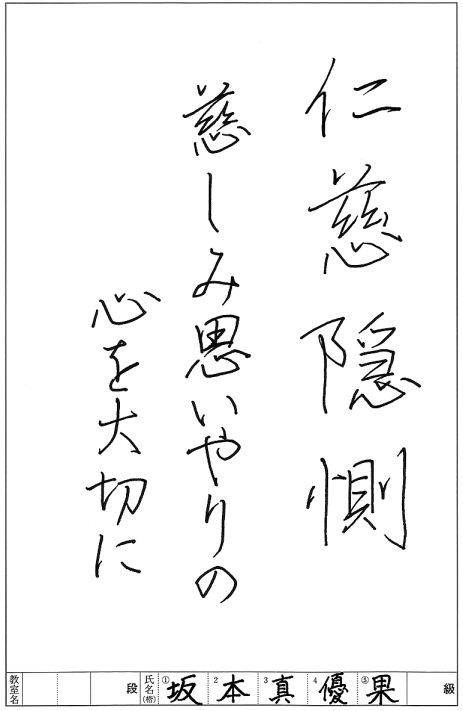 仁慈隠惻
慈しみ思いやりの
心を大切に
教室名 段 氏名(楷) ①坂 2本 3真 4優 ⑤果 級